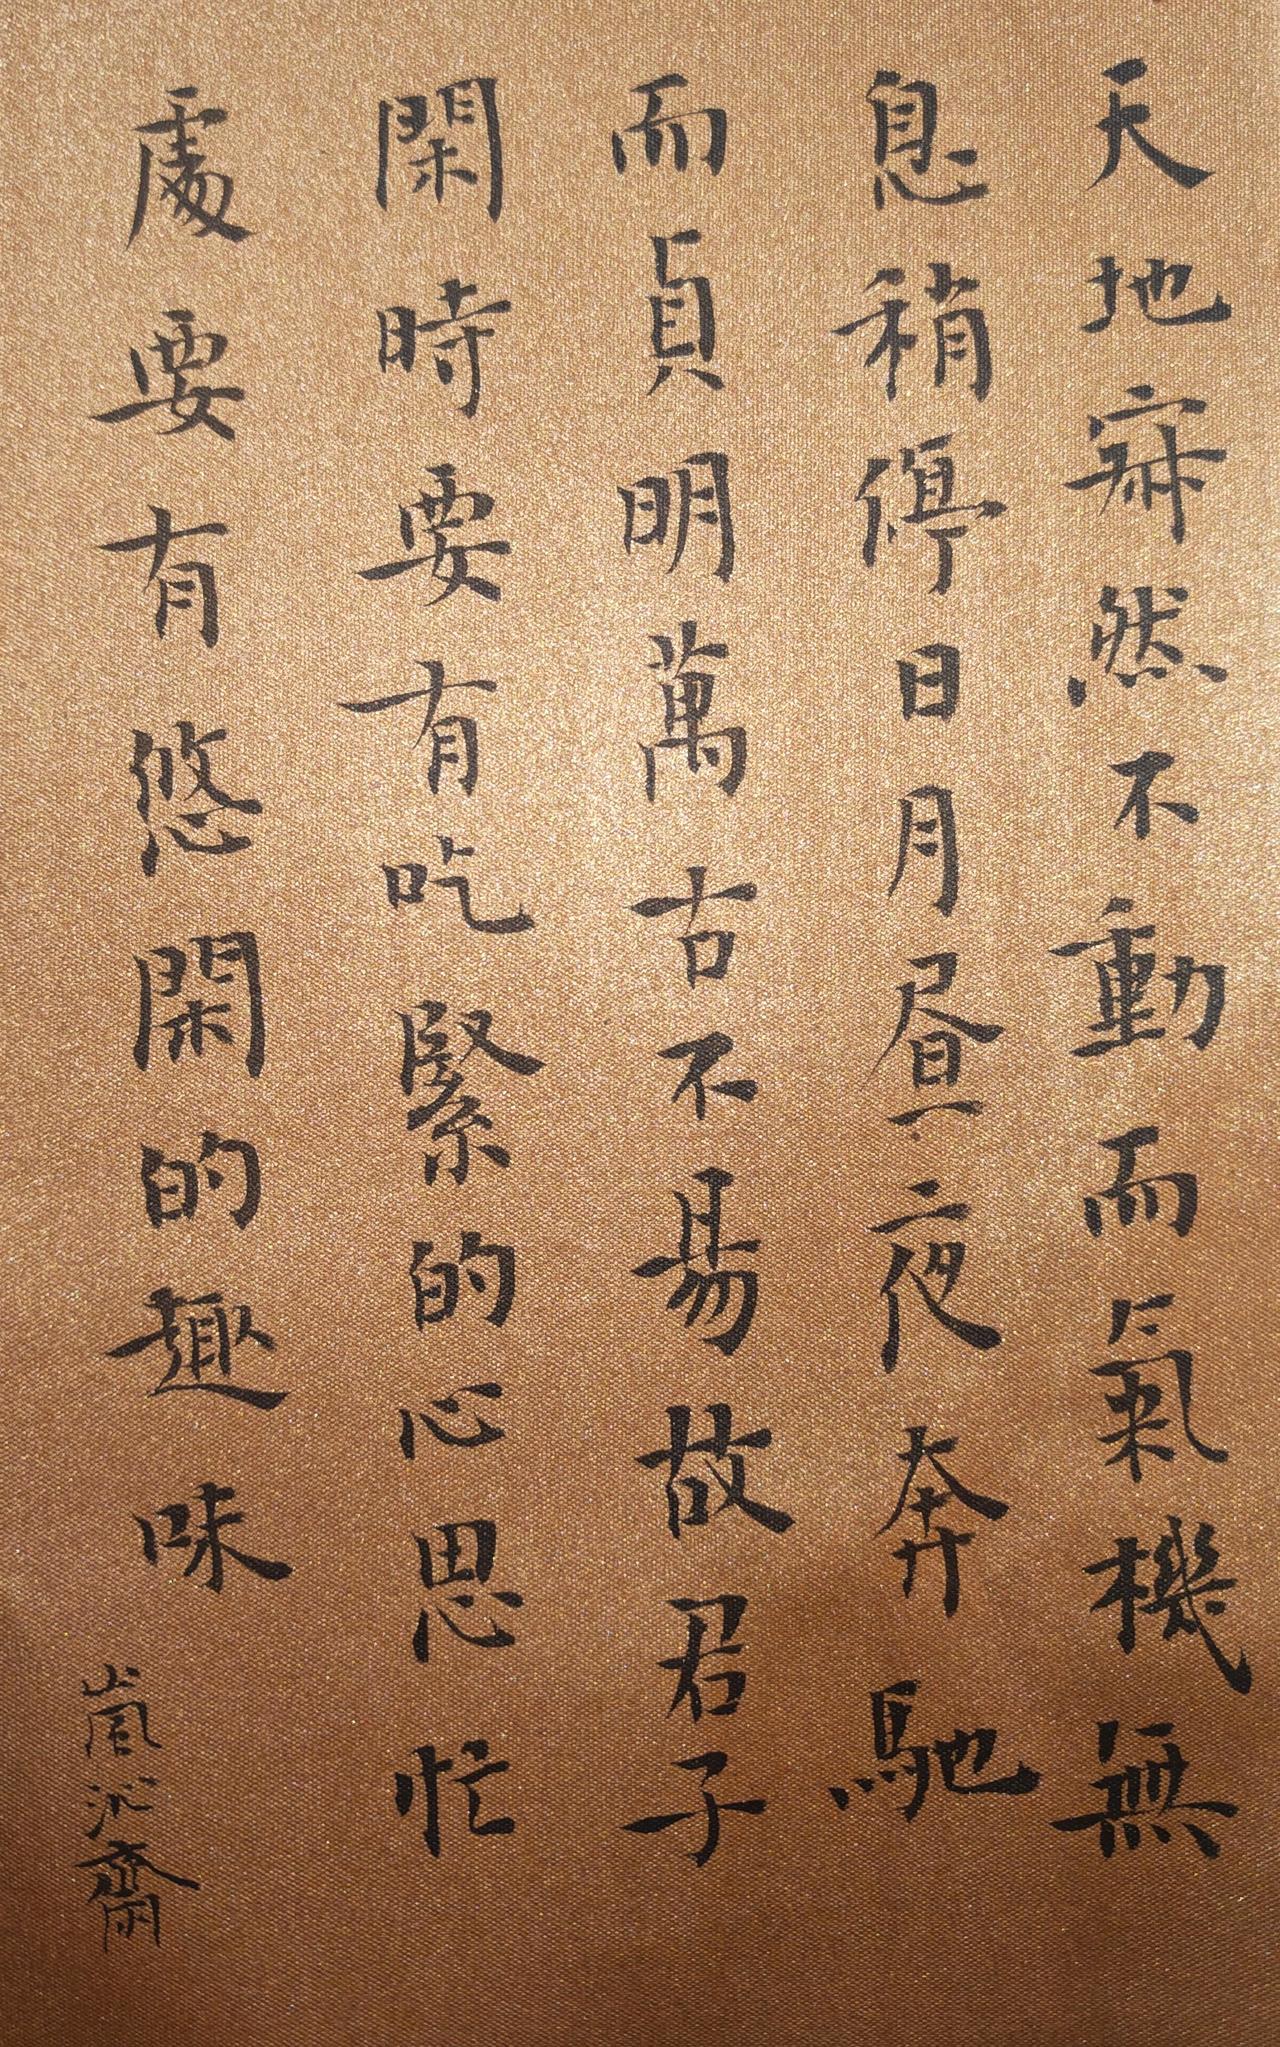 天地寂然不動而氣機無
息稍停日月晝夜奔馳
而貞明萬古不易故君子
閑時要有吃緊的心思忙
處要有悠閑的趣味
嵐沁齋